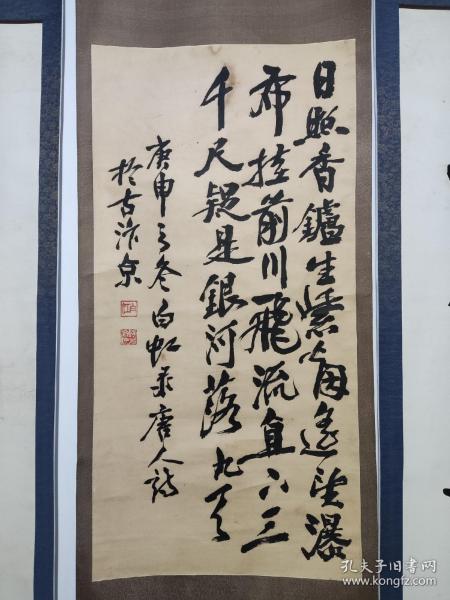 日照香鑪生紫烟遥望瀑
布挂前川飛流直下三
千尺疑是銀河落九天
庚申之冬白虹录唐人诗
於古汴京
孔夫子旧书网
www.kongfz.com